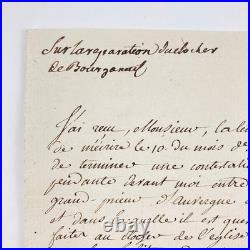 Sur la reparation du clocher
de Bourganeuf
J'ai reçu, Monsieur, la le
de m'écrire le 10 du mois de
de terminer une contestatio
pendante devant moi entre
grand-prieur d'Auvergne e
et dans laquelle il est que
faites au clocher de l'église